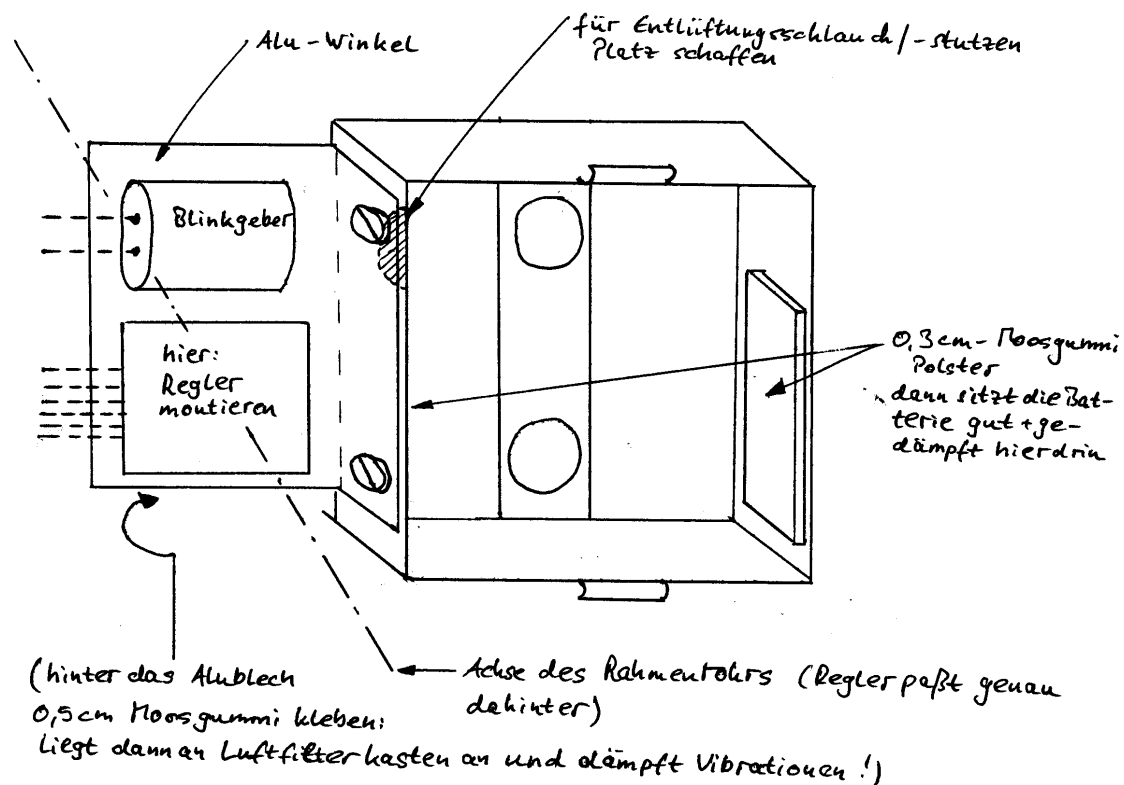 für Entlüftungsschlauch/-stutzen
Platz schaffen
Alu-Winkel
Blinkgeber
hier:
Regler
montieren
0,3cm-Moosgummi
Polster
dann sitzt die Bat-
terie gut + ge-
dämpft hierdrin
(hinter das Alublech
0,5cm Moosgummi kleben;
liegt dann an Luftfilterkasten an und dämpft Vibrationen!)
Achse des Rahmenrohrs (Regler paßt genau
dahinter)